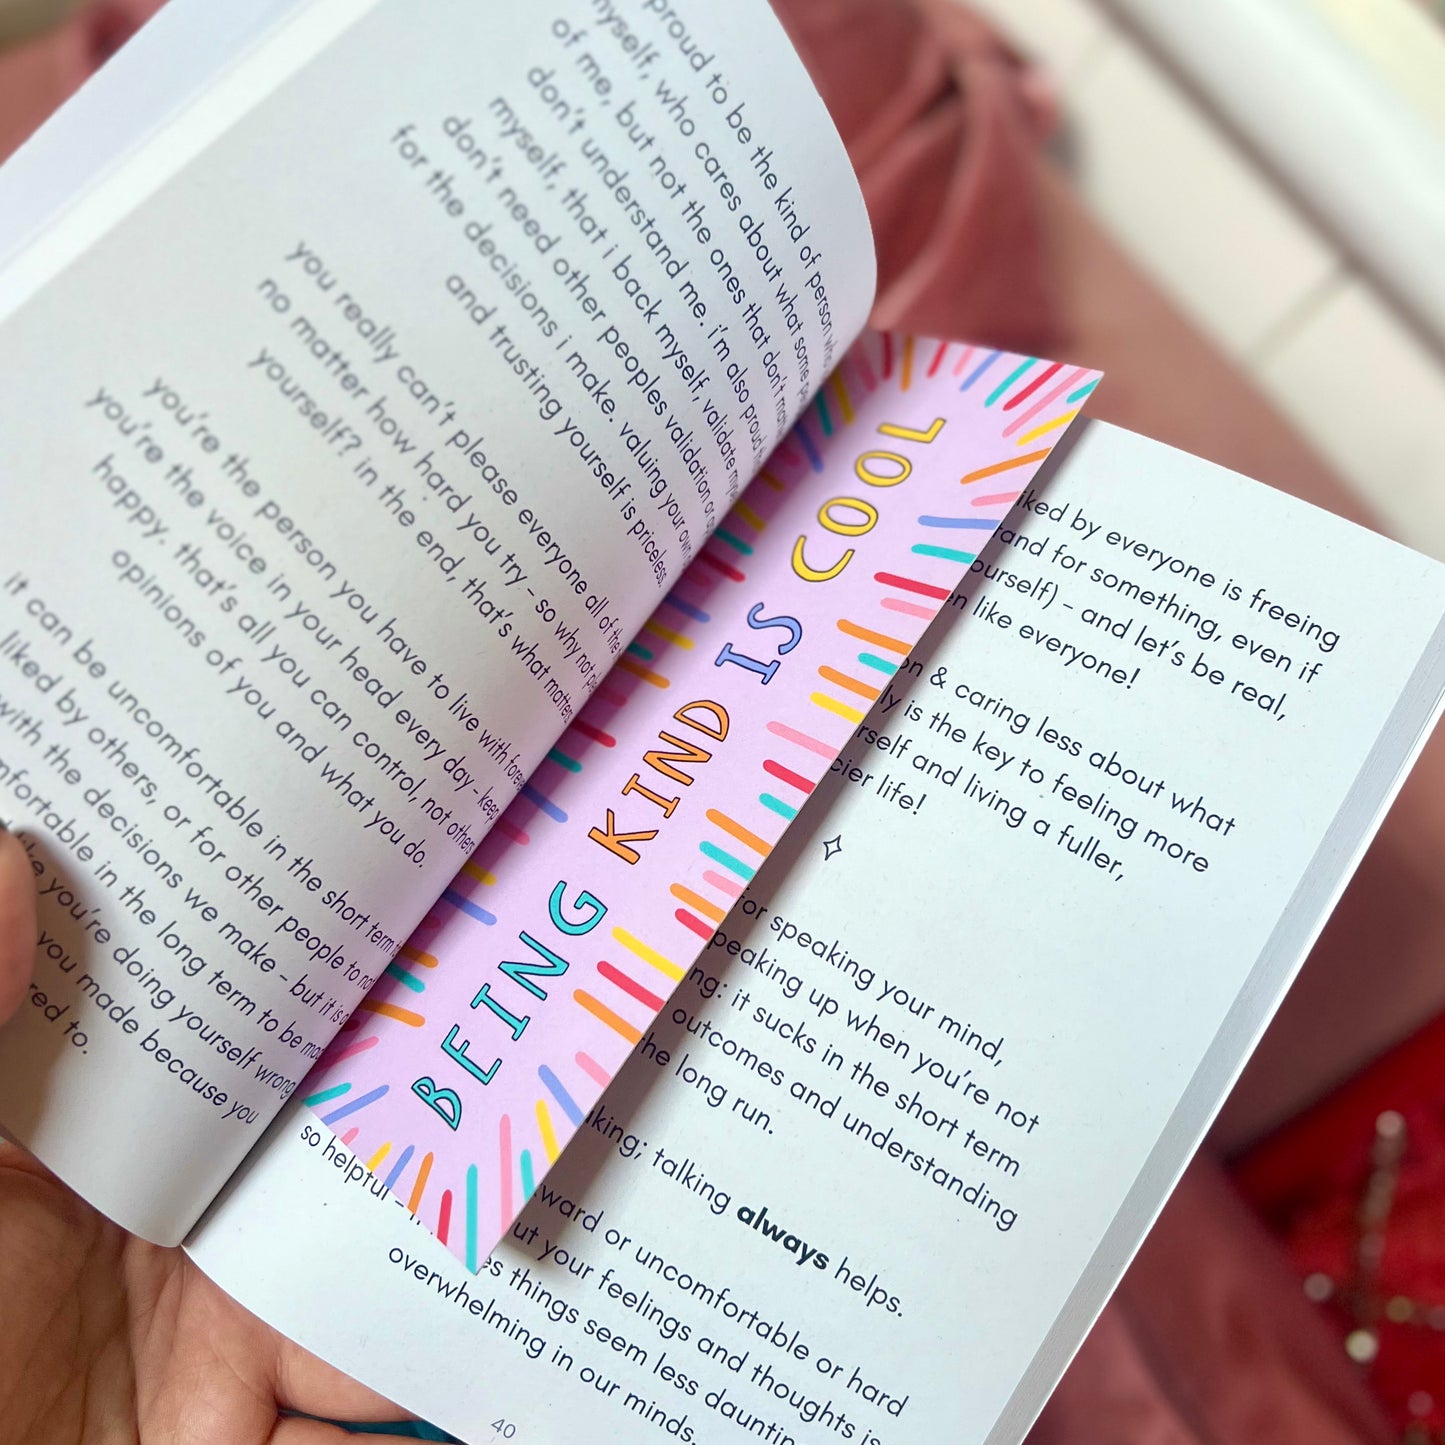 proud to be the kind of person who
myself, who cares about what some
of me, but not the ones that don't
don't understand me. i'm also proud
myself, that i back myself, validate
don't need other peoples validation or
for the decisions i make. valuing your own
and trusting yourself is priceless.
you really can't please everyone all of the
no matter how hard you try - so why not
yourself? in the end, that's what matters.
you're the person you have to live with
you're the voice in your head every day - keep
happy. that's all you can control, not others
opinions of you and what you do.
it can be uncomfortable in the short term
liked by others, or for other people to not
with the decisions we make - but it is
in the long term to be
you're doing yourself wrong
you made because you
to.
BEING KIND IS COOL
liked by everyone is freeing
for something, even if
yourself) - and let's be real,
like everyone!
& caring less about what
is the key to feeling more
and living a fuller,
life!
for speaking your mind,
speaking up when you're not
it sucks in the short term
outcomes and understanding
the long run.
talking always helps.
or uncomfortable or hard
so helpful -
your feelings and thoughts is
things seem less
overwhelming in our minds.
40